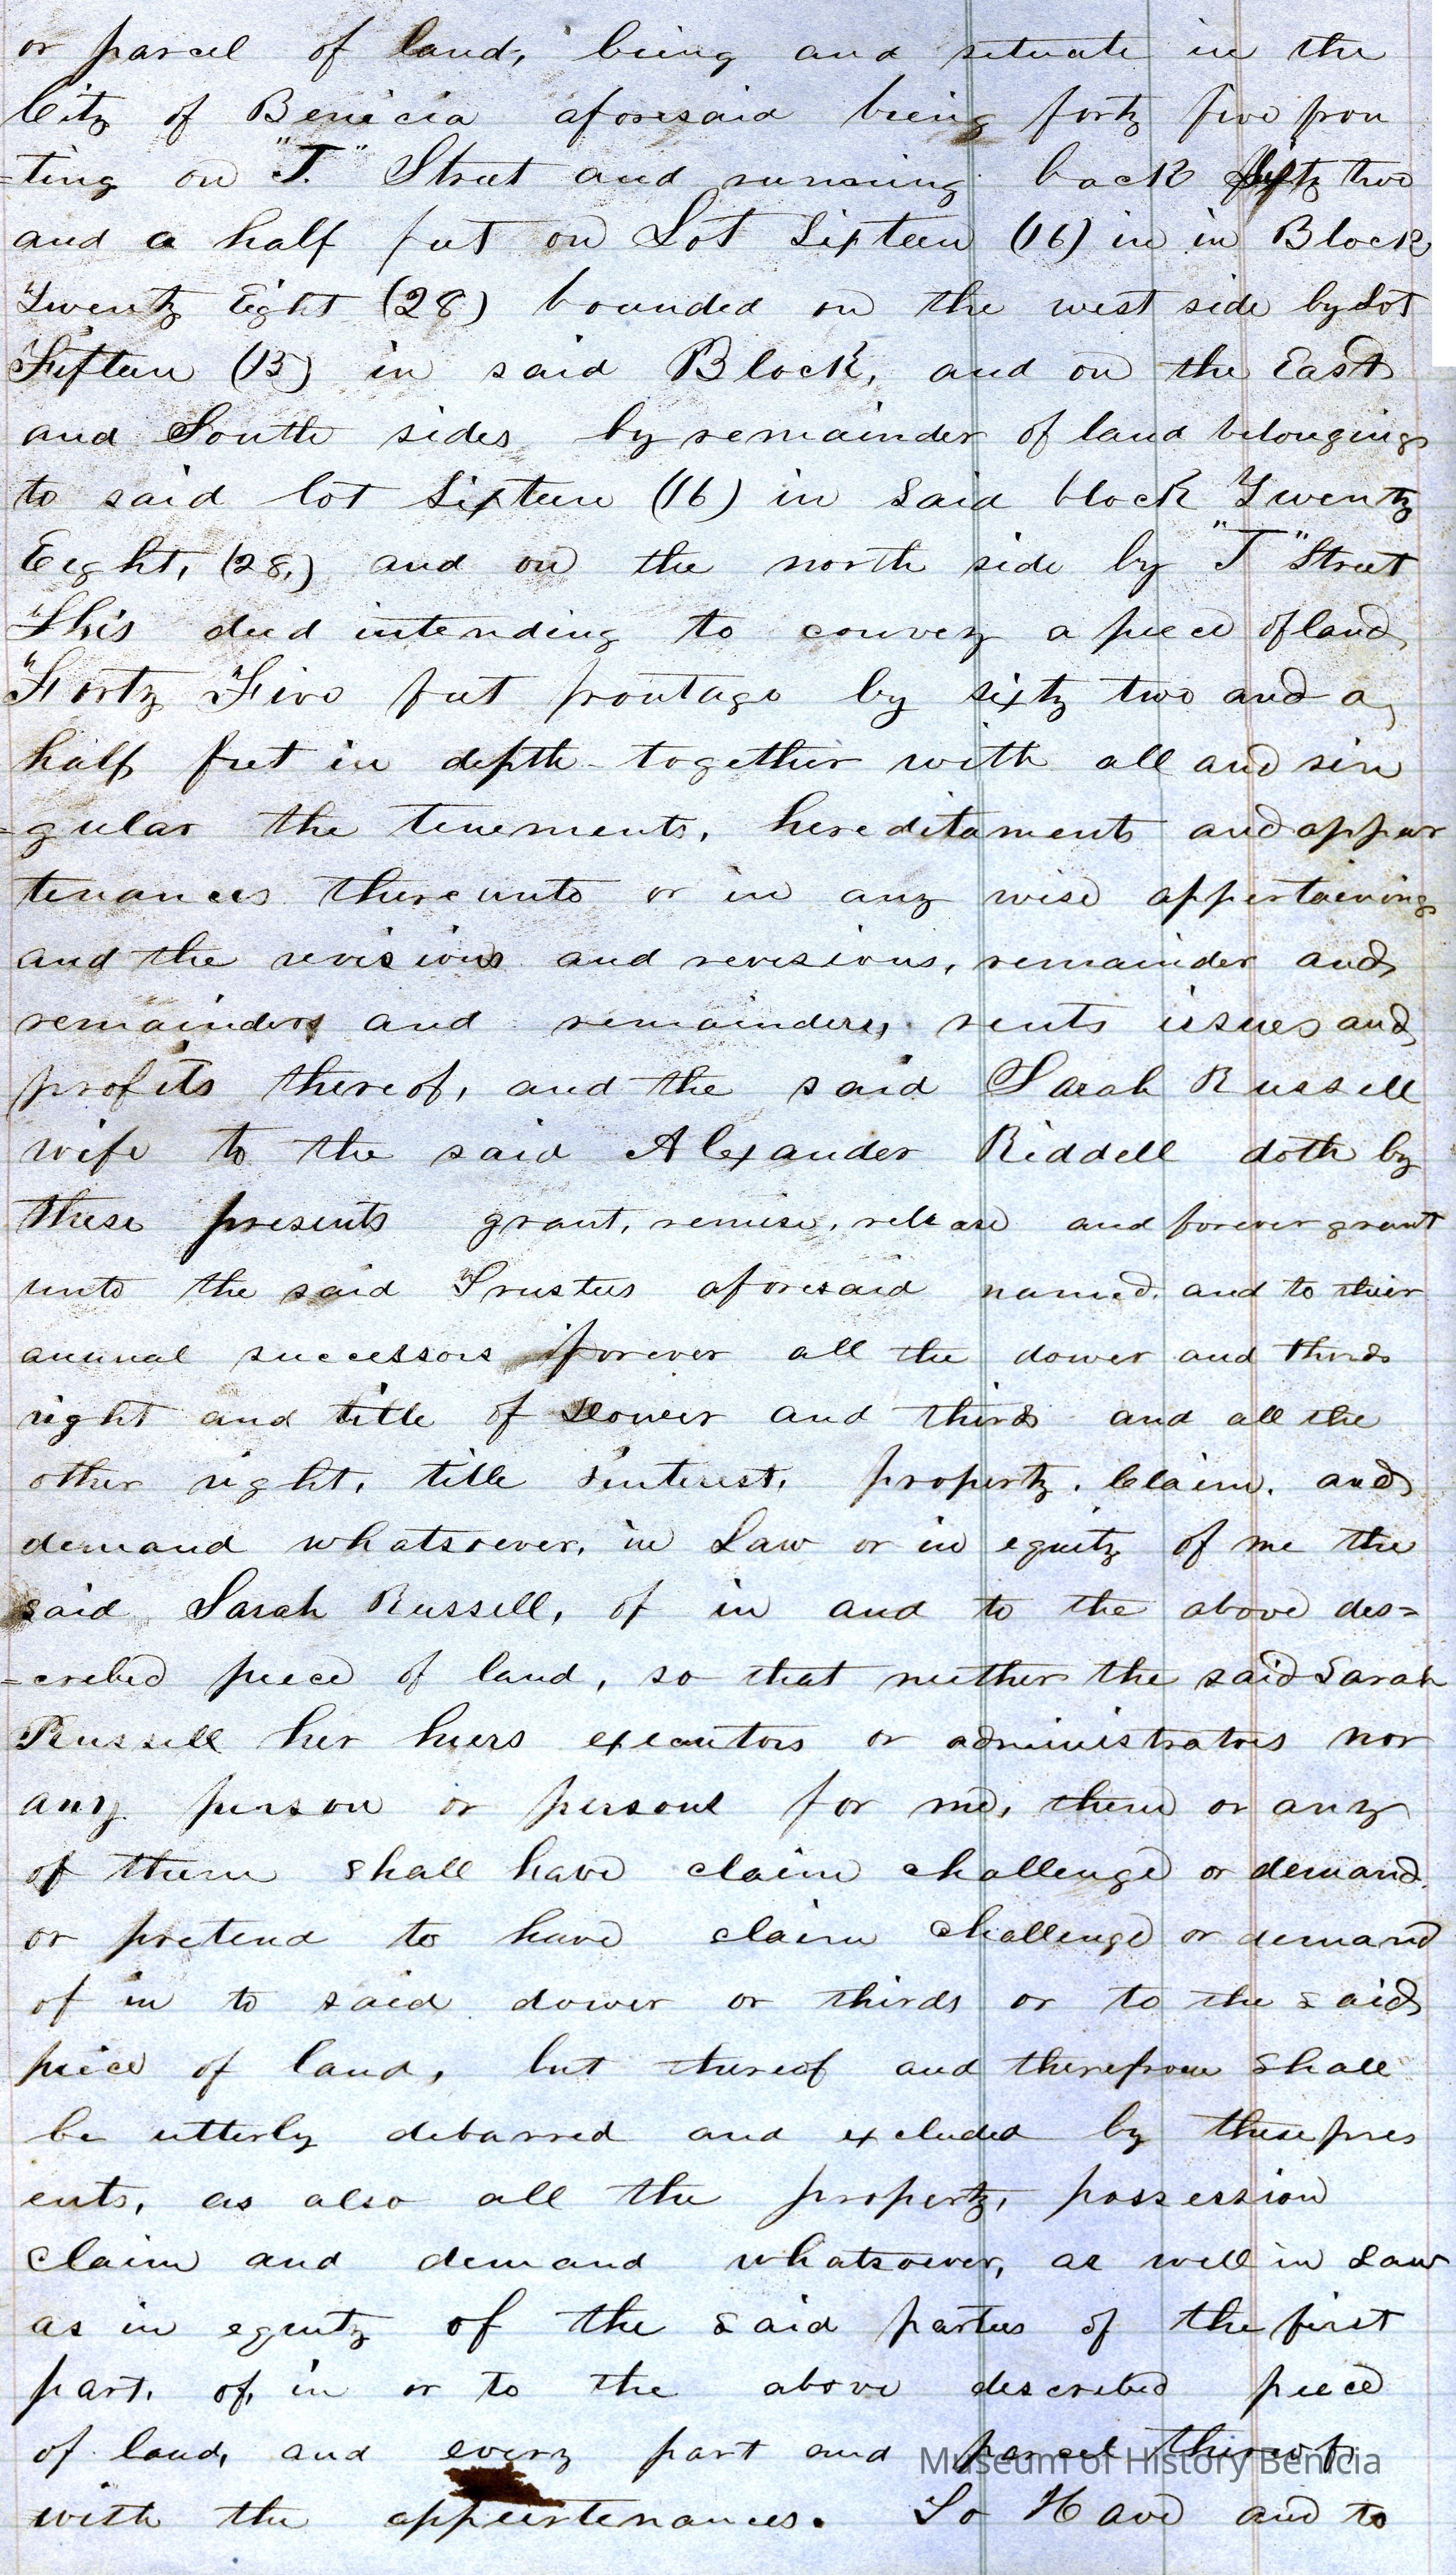 or parcel of land, being and situate in the
City of Benicia aforesaid being forty five fron
=ting on "J." Street and running back fifty two
and a half feet on Lot Sixteen (16) in in Block
Twenty Eight (28) bounded on the west side by Lot
Fifteen (15) in said Block, and on the East
and South sides by remainder of land belonging
to said lot Sixteen (16) in said block Twenty
Eight, (28,) and on the north side by "J" Street
This deed intending to convey a peece of land
Forty Five feet frontage by sixty two and a
half feet in depth together with all and sin
=gular the tenements, hereditaments and appur
tenances thereunto or in any wise appertaining
and the revisions and revisions, remainder and
remainders and remainders, rents issues and
profits thereof, and the said Sarah Russell
wife to the said Alexander Riddell doth by
these presents grant, remise, release and forever grant
unto the said Trustees aforesaid named. and to their
annual successors forever all the dower and thirds
right and title of Dower and thirds and all the
other right, title interest, property, Claim, and
demand whatsoever, in Law or in equity of me the
said Sarah Russell, of in and to the above des=
=crebed peece of land, so that neither the said Sarah
Russell her hiers executors or administrators nor
any person or persons for me, them or any
of them shall have claim challenge or demand
or pretend to have claim challenge or demand
of in to said dower or thirds or to the said
peice of land, but thereof and therefrom shall
be utterly debarred and excluded by these pres
ents, as also all the property, possession
claim and demand whatsoever, as well in Law
as in equity of the said parties of the first
part, of, in or to the above descrebed peece
of land, and every part and parcel thereof,
with the appurtenances. To Have and to
Museum of History Benicia